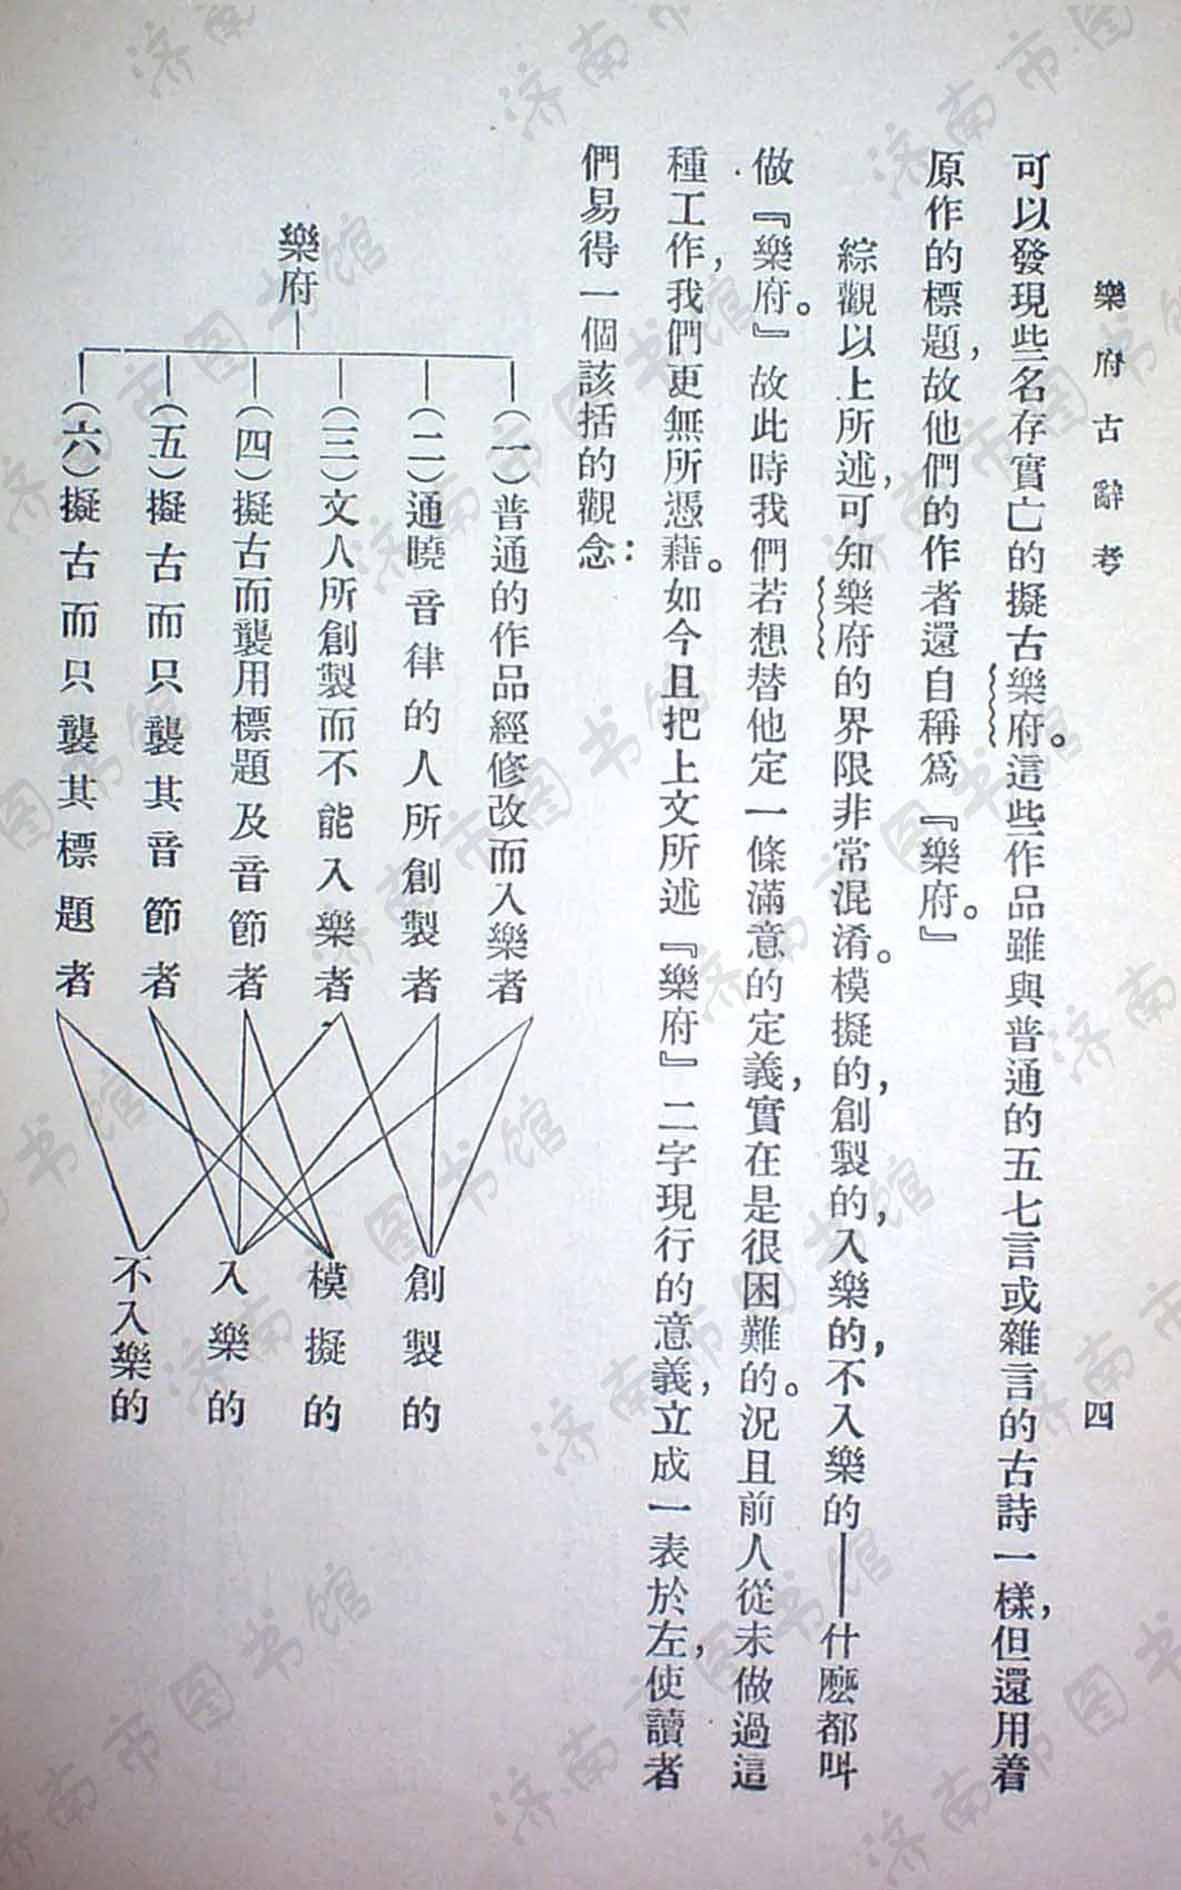 樂府古辭考
四
可以發現些名存實亡的擬古樂府。這些作品雖與普通的五七言或雜言的古詩一樣，但還用着
原作的標題，故他們的作者還自稱爲『樂府。』
綜觀以上所述，可知樂府的界限非常混淆。模擬的，創製的，入樂的，不入樂的——什麼都叫
做『樂府。』故此時我們若想替他定一條滿意的定義，實在是很困難的。況且前人從未做過這
種工作，我們更無所憑藉。如今且把上文所述『樂府』二字現行的意義，立成一表於左，使讀者
們易得一個該括的觀念：
樂府
（一）普通的作品經修改而入樂者
（二）通曉音律的人所創製者
（三）文人所創製而不能入樂者
（四）擬古而襲用標題及音節者
（五）擬古而只襲其音節者
（六）擬古而只襲其標題者
創製的
模擬的
入樂的
不入樂的
济南市图书馆